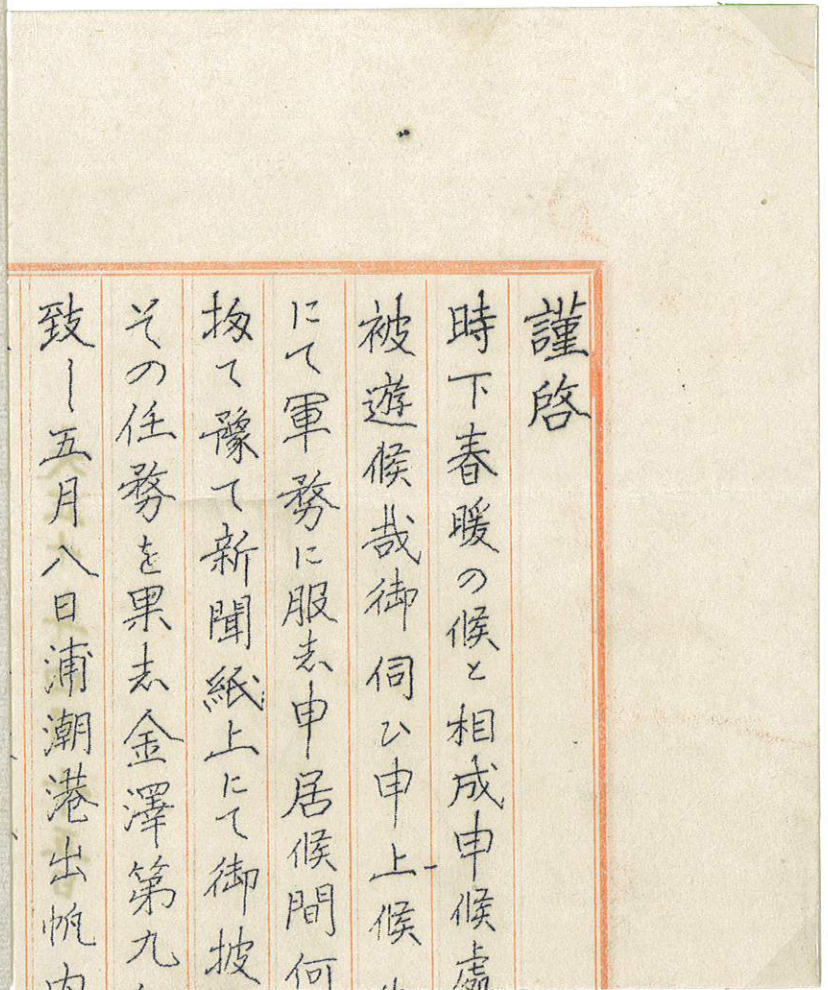 謹啓
時下春暖の候と相成申候處
被遊候哉御伺ひ申上候
にて軍務に服志申居候間何
扨て豫て新聞紙上にて御披
その任務を果志金澤第九
致し五月八日浦潮港出帆内